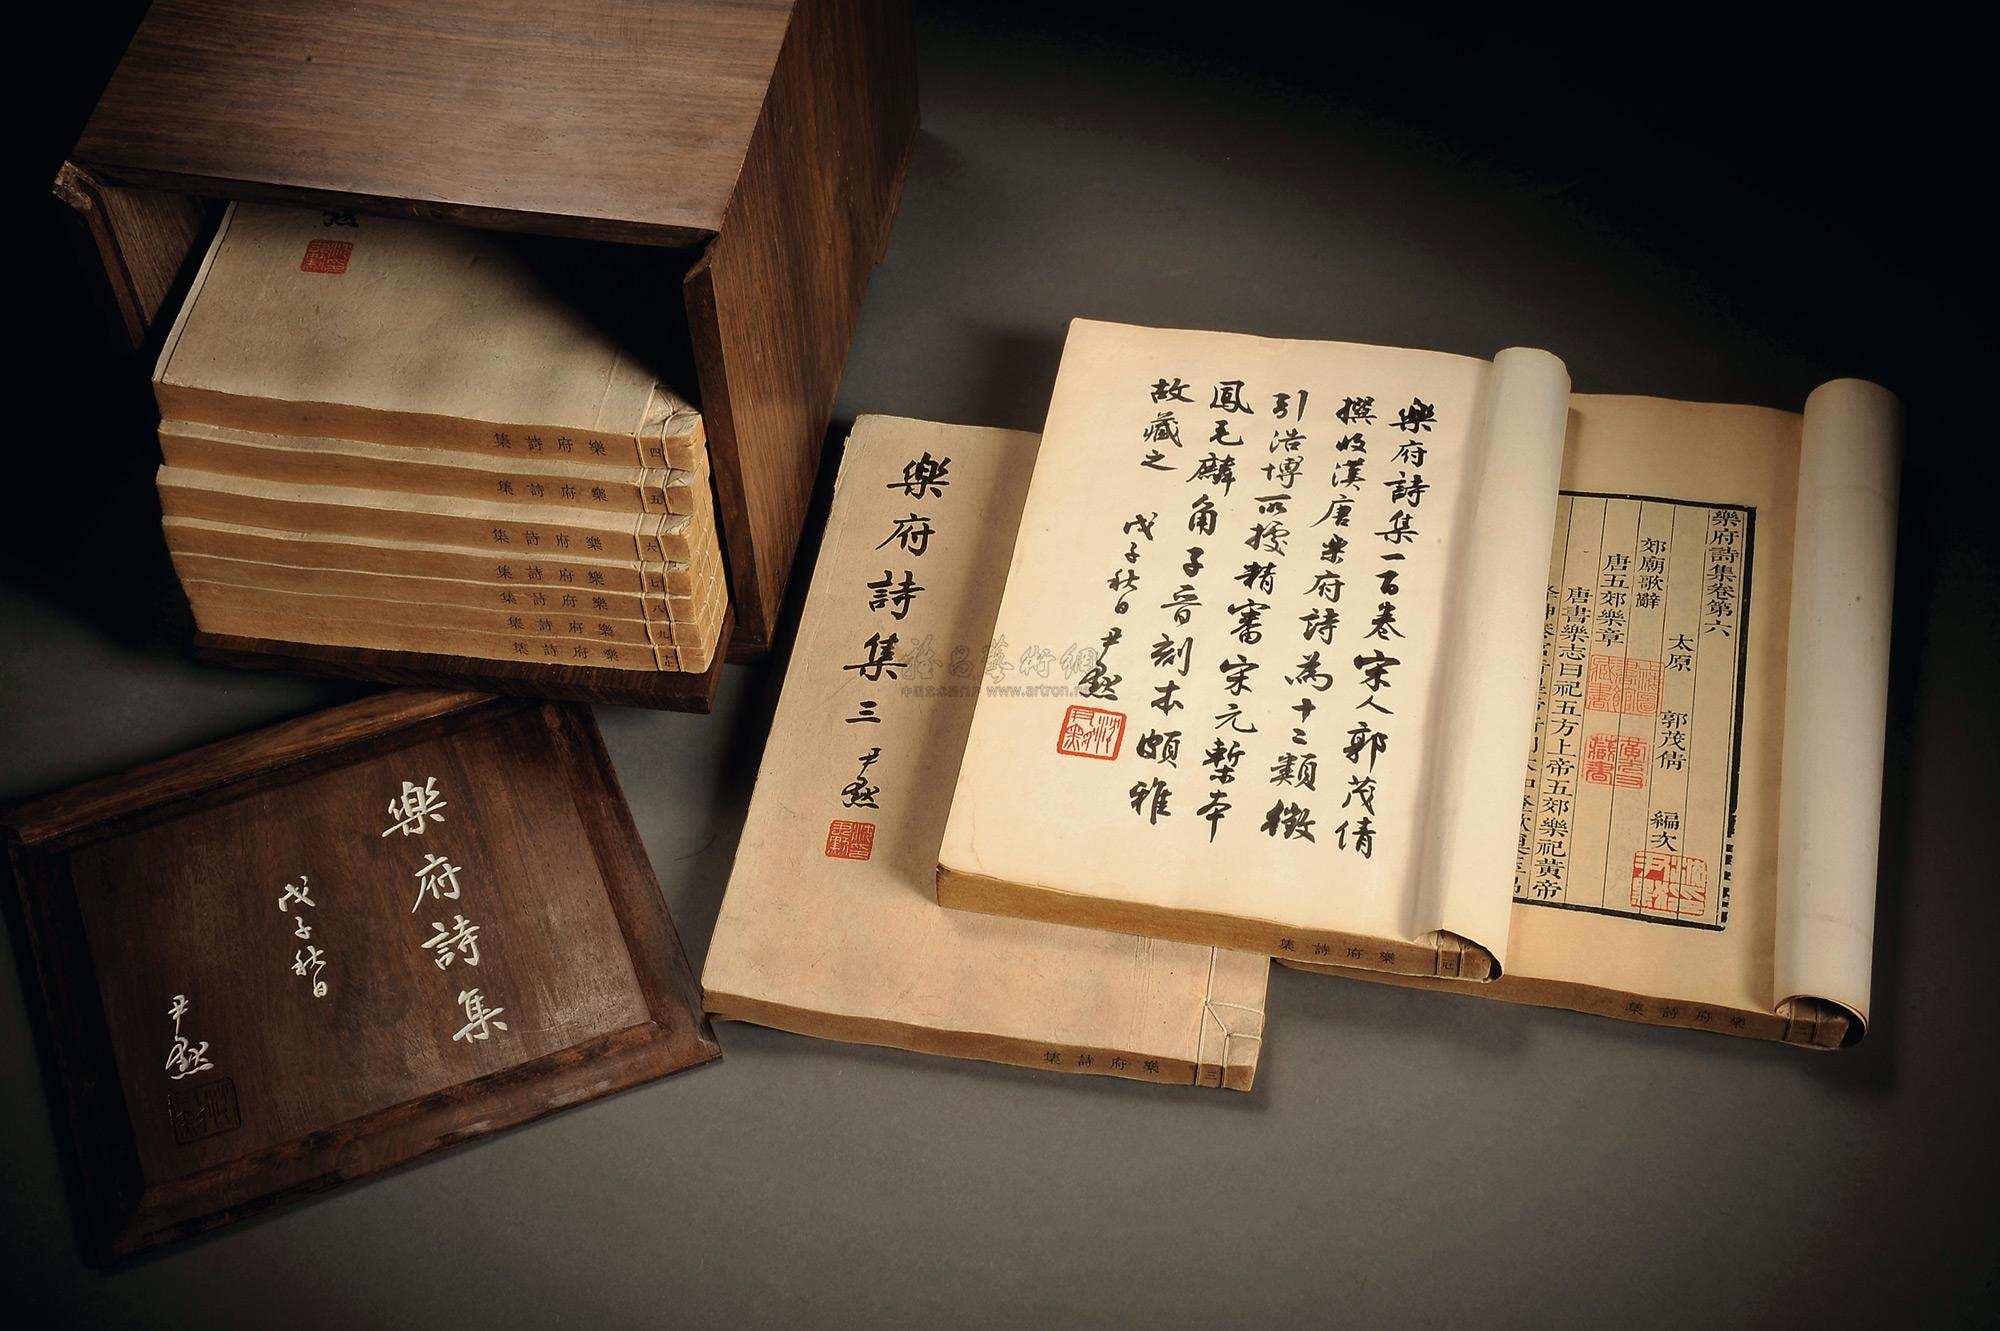 默
樂府詩集 四
樂府詩集 五
樂府詩集 六
樂府詩集 七
樂府詩集 八
樂府詩集 九
樂府詩集 十止
樂府詩集
戊子秋日
尹默
樂府詩集 三 尹默
樂府詩集 三
樂府詩集一百卷宋人郭茂倩
撰收漢唐樂府詩為十二類徵
引浩博所據精審宋元槧本
鳳毛麟角子晉刻本頗雅
故藏之
戊子秋日尹默
樂府詩集
樂府詩集卷第六
太原 郭茂倩 編次
郊廟歌辭
唐五郊樂章
唐書樂志曰祀五方上帝五郊樂祀黃帝
樂府詩集 二
雅昌藝術網
www.artron.net